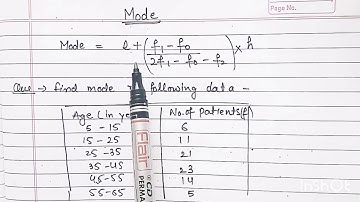 Page No.
Mode
Mode = l + (f1 - f0 / 2f1 - f0 - f2) × h
Que → find mode following data -
Age (in ye No. of patients (f)
5 - 15 6
15 - 25 11
25 - 35 21
35 - 45 23
45 - 55 14
55 - 65 5
Flair
CD
PERMA